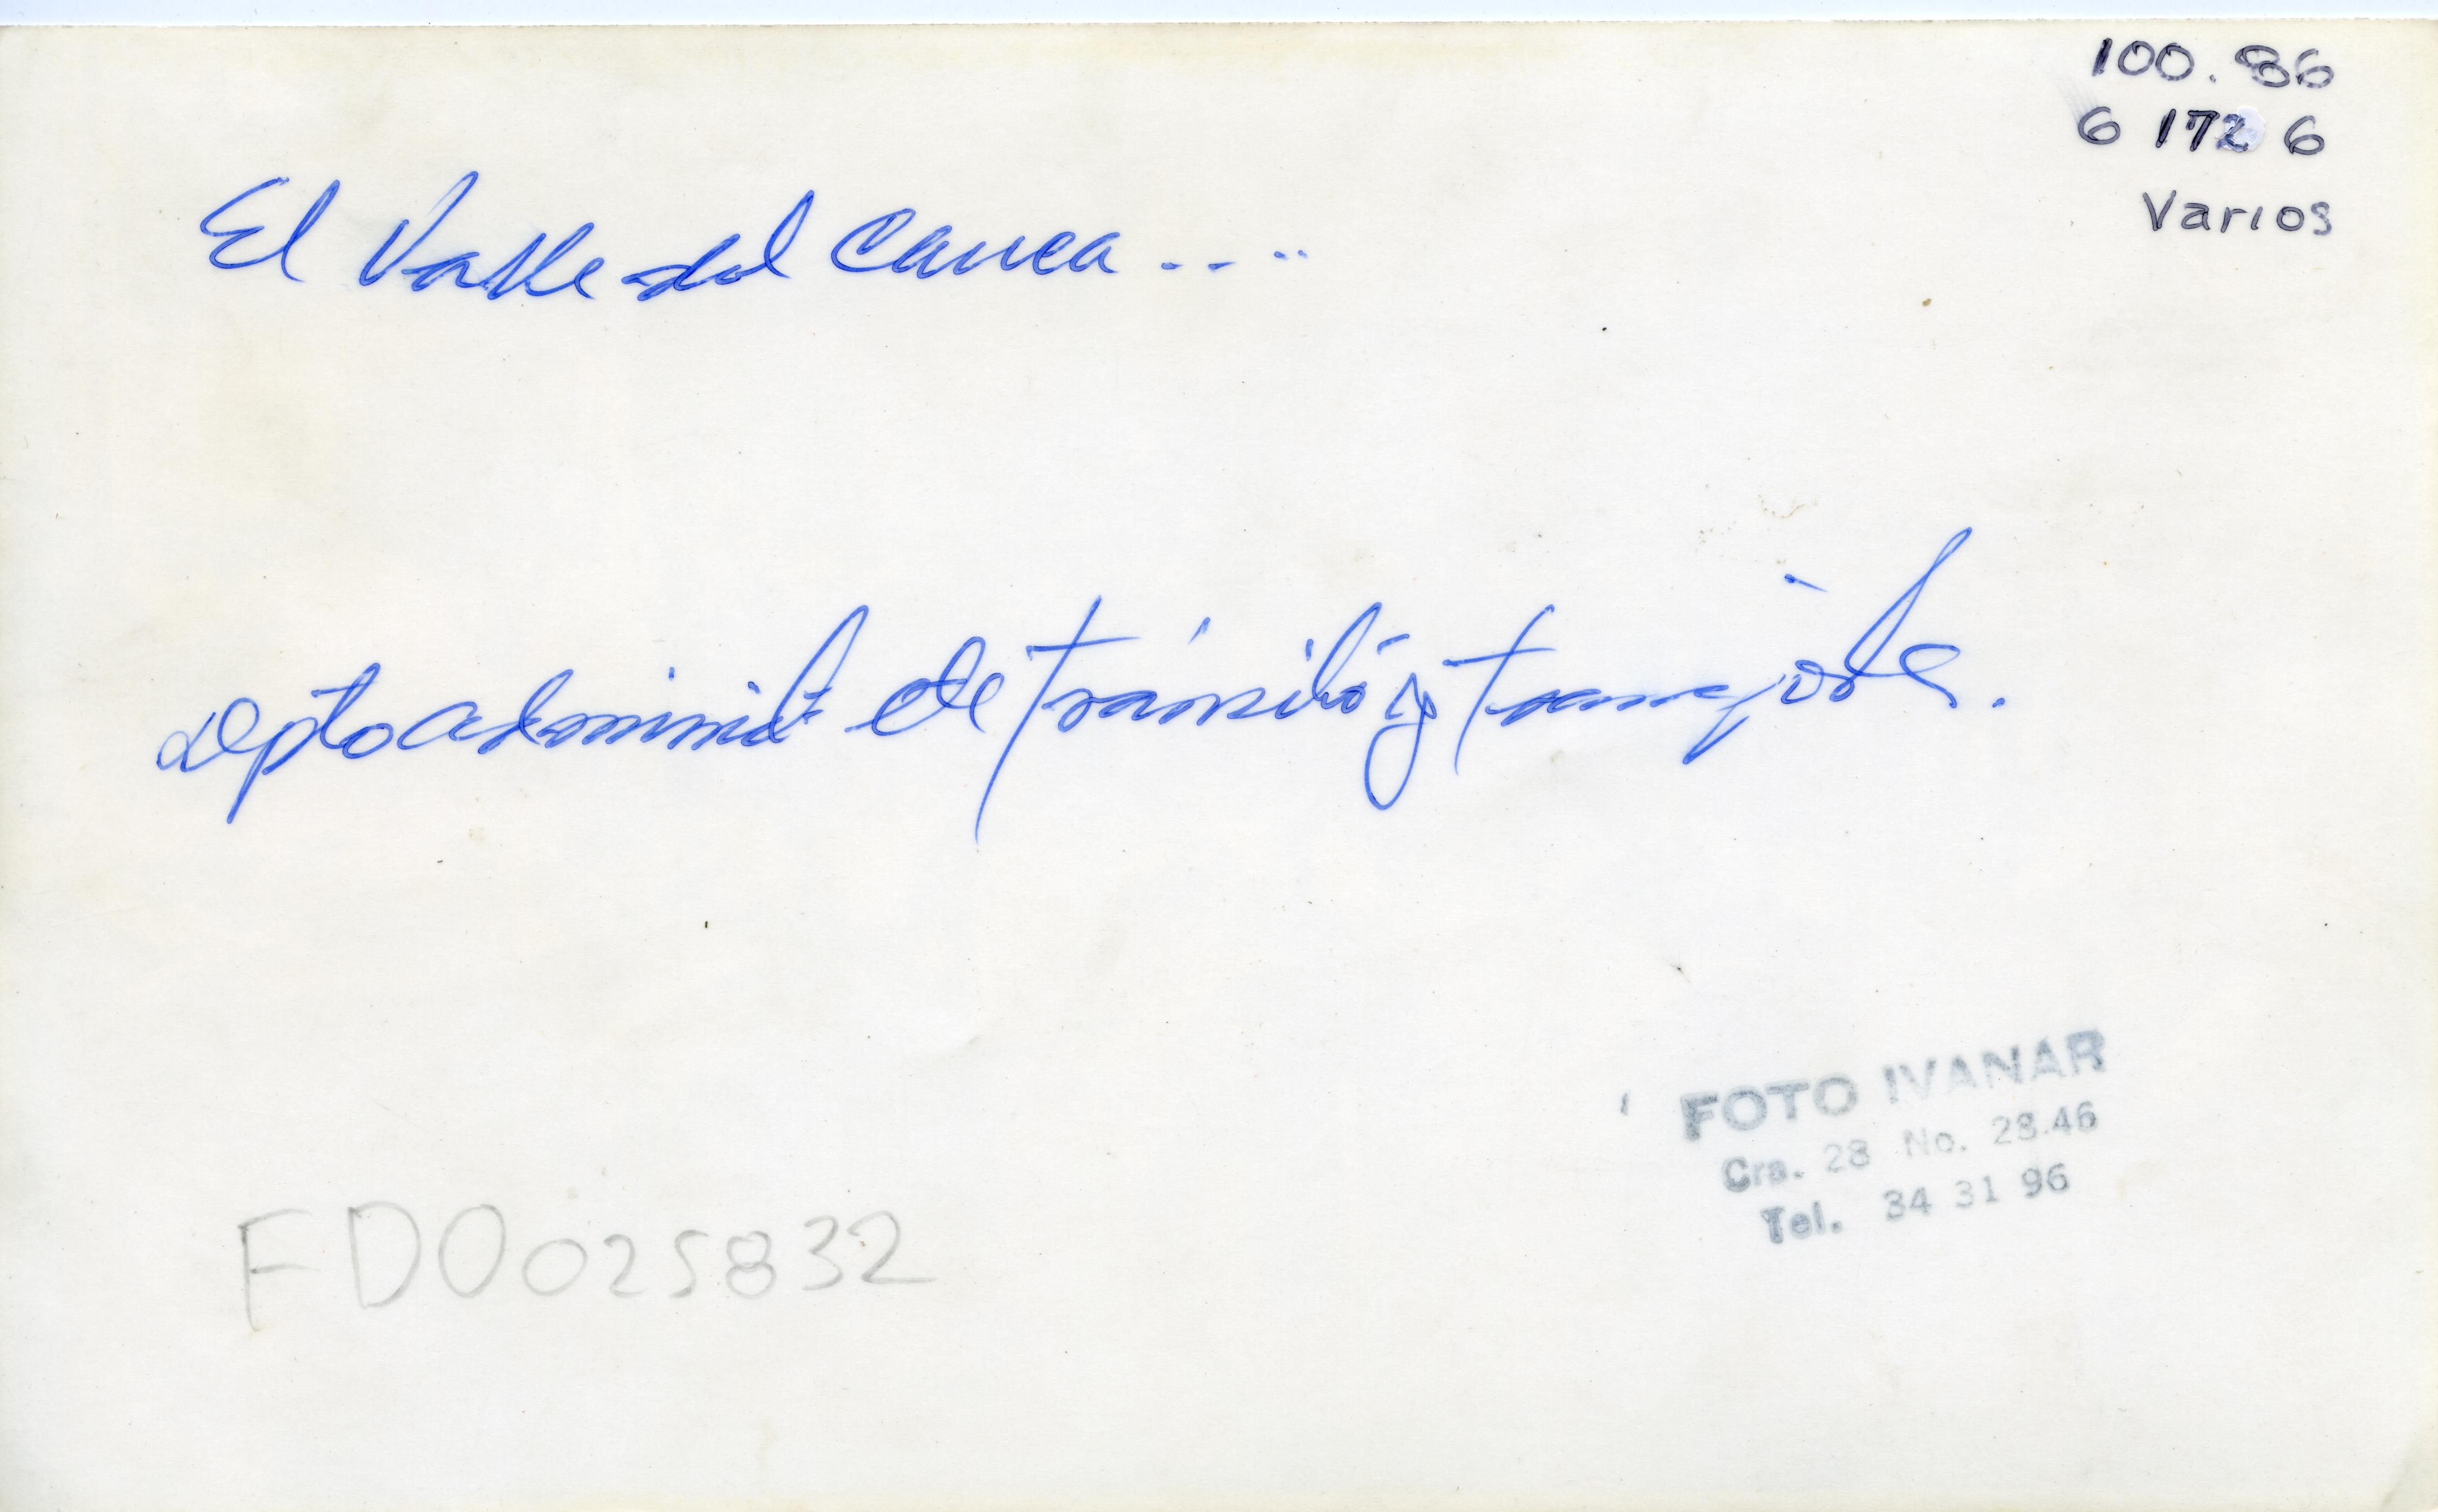 100.86
6 172 6
Varios
El Valle del Cauca....
depto administ de tránsito y transporte.
FOTO IVANAR
Cra. 28 No. 28.46
Tel. 34 31 96
FD0025832